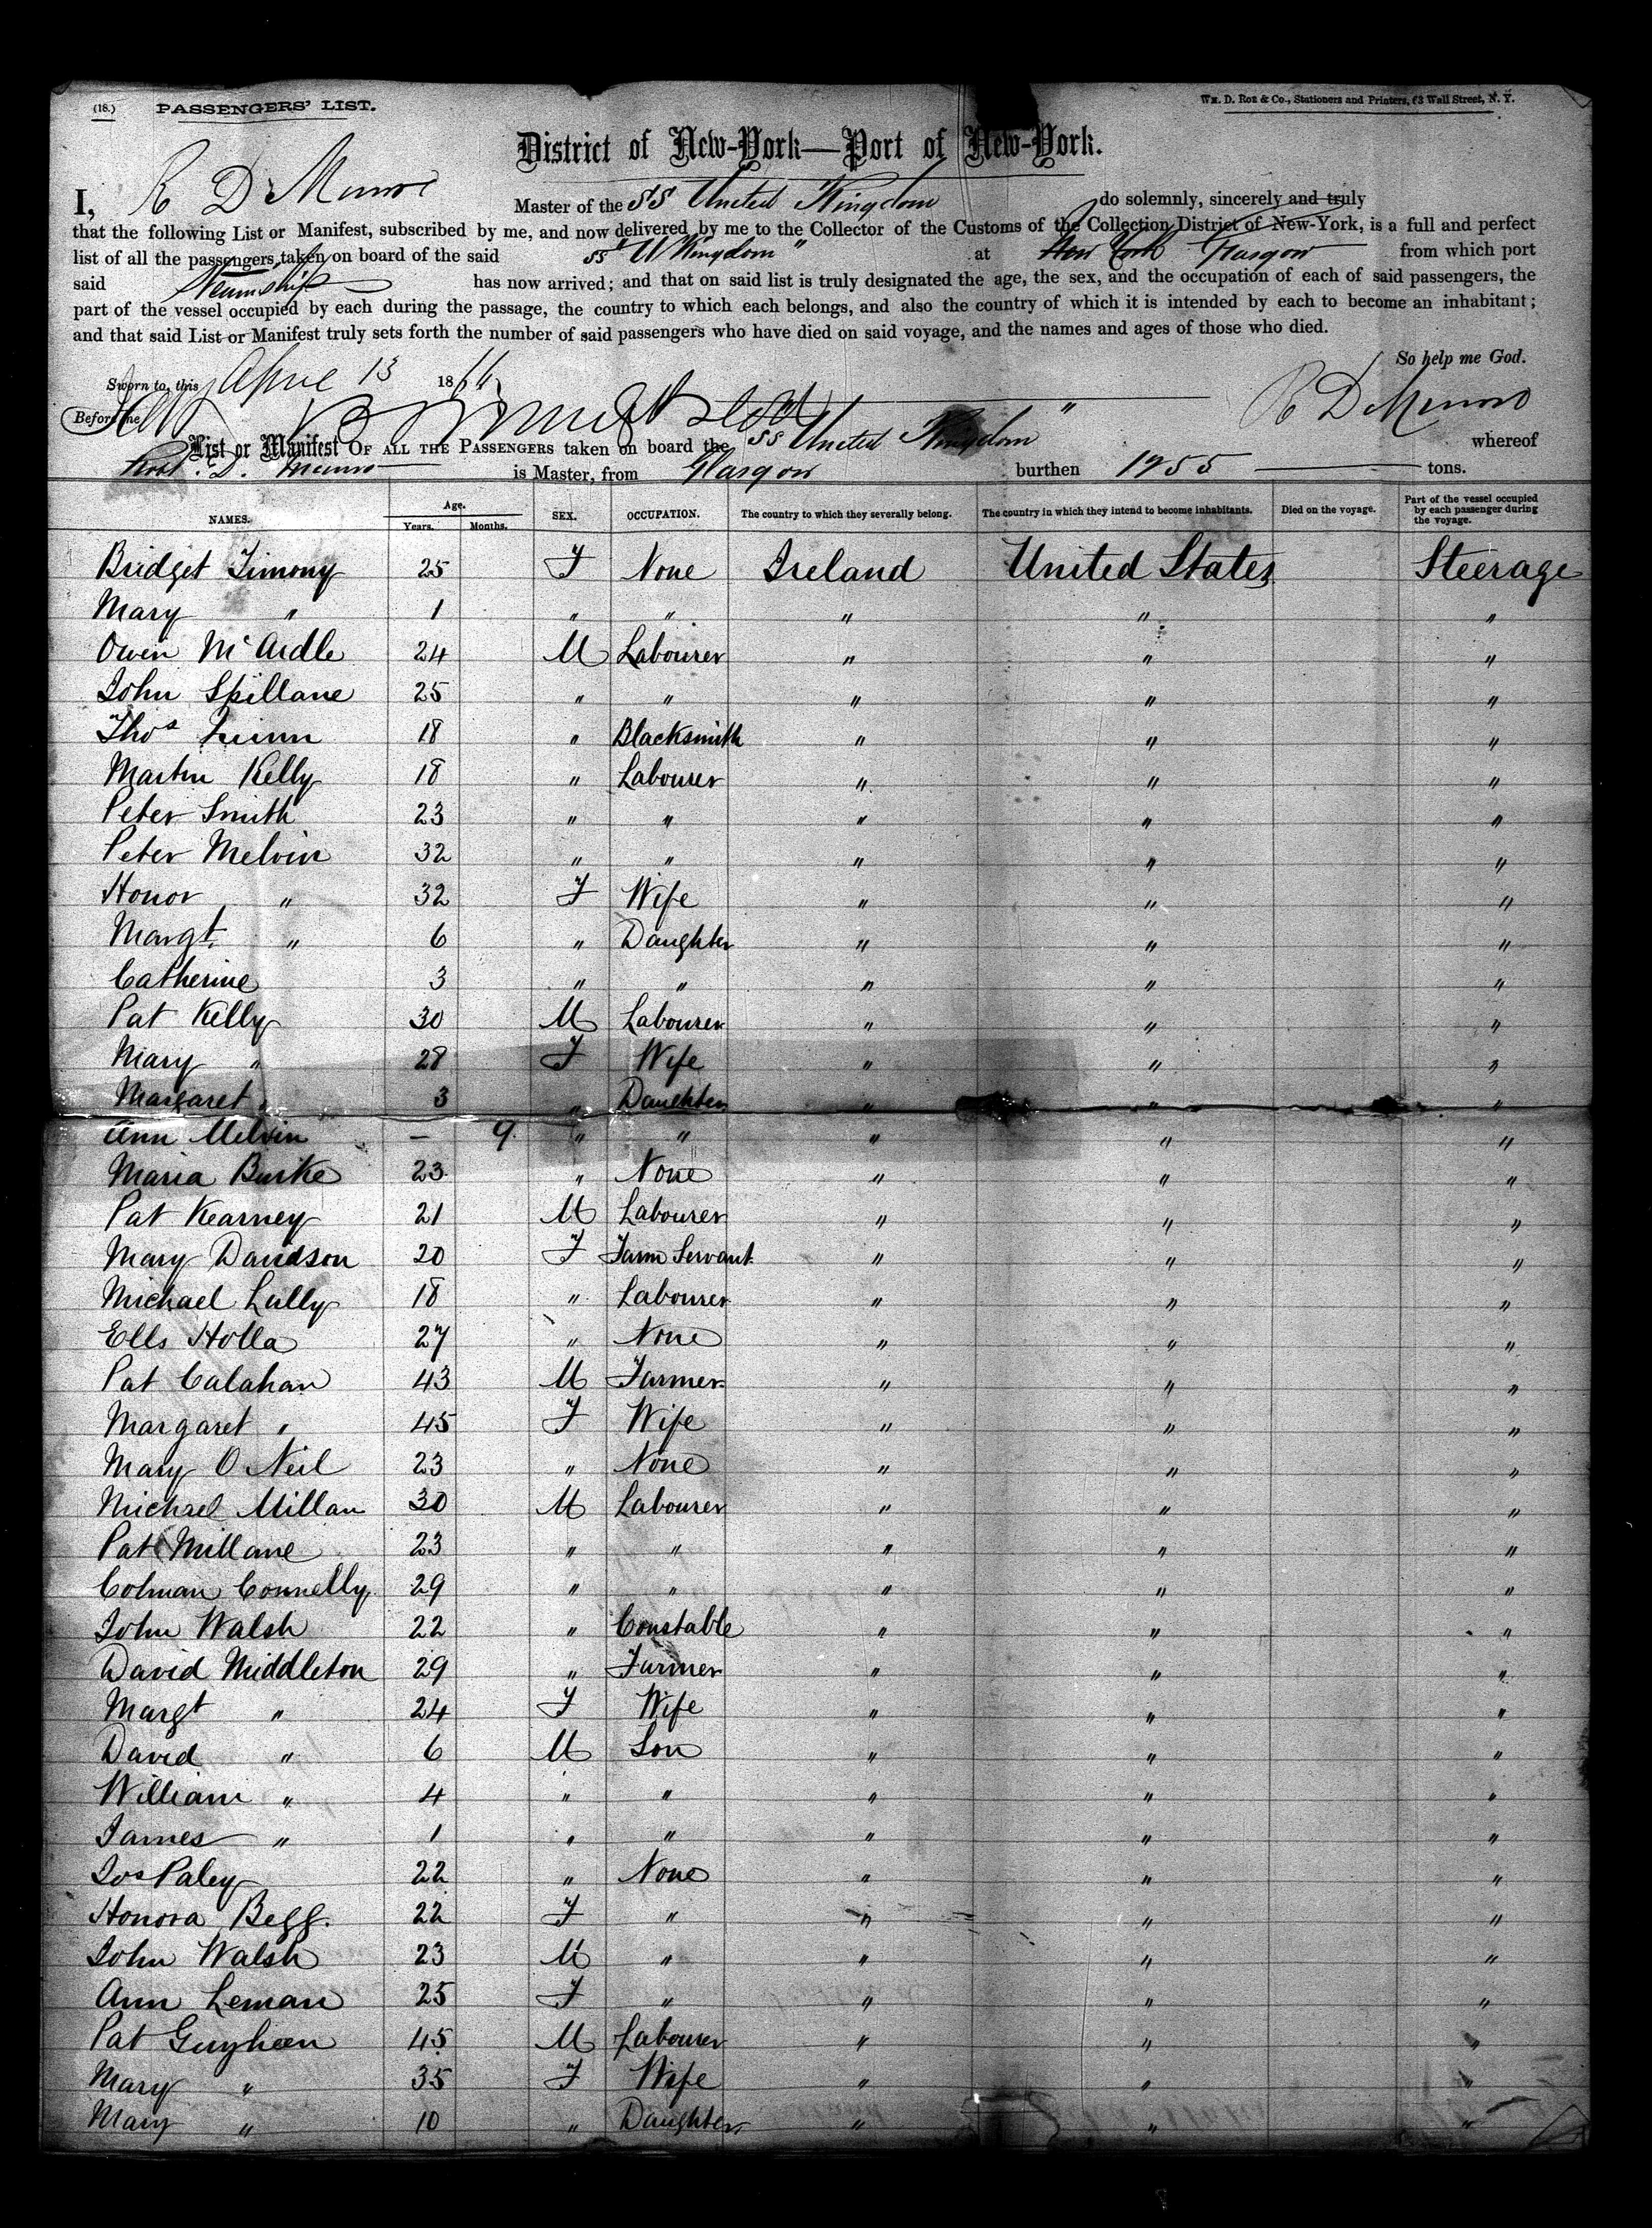 (18.) PASSENGERS' LIST. Wm. D. Roe & Co., Stationers and Printers, 63 Wall Street, N. Y.
District of New-York—Port of New-York.
I, R D Munro Master of the SS United Kingdom do solemnly, sincerely and truly
that the following List or Manifest, subscribed by me, and now delivered by me to the Collector of the Customs of the Collection District of New-York, is a full and perfect
list of all the passengers taken on board of the said ss "U Kingdom" at New York Glasgow from which port
said Steamship has now arrived; and that on said list is truly designated the age, the sex, and the occupation of each of said passengers, the
part of the vessel occupied by each during the passage, the country to which each belongs, and also the country of which it is intended by each to become an inhabitant;
and that said List or Manifest truly sets forth the number of said passengers who have died on said voyage, and the names and ages of those who died.
So help me God.
Sworn to, this April 13 18
Before me R D Munro
List or Manifest OF ALL THE PASSENGERS taken on board the SS United Kingdom " whereof
Robt. D. Munro is Master, from Glasgow burthen 1255 tons.
NAMES. Age. Years. Months. SEX. OCCUPATION. The country to which they severally belong. The country in which they intend to become inhabitants. Died on the voyage. Part of the vessel occupied by each passenger during the voyage.
Bridget Timony 25 F None Ireland United States Steerage
Mary " 1 " " " " "
Owen McArdle 24 M Labourer " " "
John Spillane 25 " " " " "
Thos Quinn 18 " Blacksmith " " "
Martin Kelly 18 " Labourer " " "
Peter Smith 23 " " " " "
Peter Melvin 32 " " " " "
Honor " 32 F Wife " " "
Margt. " 6 " Daughter " " "
Catherine 3 " " " " "
Pat Kelly 30 M Labourer " " "
Mary " 28 F Wife " " "
Margaret " 3 " Daughter " " "
Ann Melvin — 9 " " " " "
Maria Burke 23 " None " " "
Pat Kearney 21 M Labourer " " "
Mary Davidson 20 F Farm Servant " " "
Michael Lally 18 " Labourer " " "
Ells Holla 27 " None " " "
Pat Calahan 43 M Farmer " " "
Margaret " 45 F Wife " " "
Mary O Neil 23 " None " " "
Michael Millan 30 M Labourer " " "
Pat Millane 23 " " " " "
Colman Connelly 29 " " " " "
John Walsh 22 " Constable " " "
David Middleton 29 " Farmer " " "
Margt " 24 F Wife " " "
David " 6 M Son " " "
William " 4 " " " " "
James " 1 " " " " "
Jos Paley 22 " None " " "
Honora Begg. 22 F " " " "
John Walsh 23 M " " " "
Ann Leman 25 F " " " "
Pat Guyheen 45 M Labourer " " "
Mary " 35 F Wife " " "
Mary " 10 " Daughter " " "